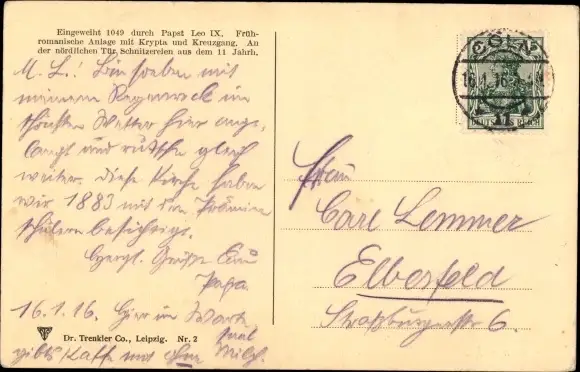 Eingeweiht 1049 durch Papst Leo IX. Früh-
romanische Anlage mit Krypta und Kreuzgang. An
der nördlichen Tür Schnitzereien aus dem 11 Jahrh.
M. L.! Bin soeben mit
meinem Regenrock im
schönsten Wetter hier ange-
langt und rutsche gleich
weiter. Diese Kirche haben
wir 1883 mit den Primin
schülern besichtigt.
Herzl. Grüsse Euer
Papa.
16.1.16. Hier im Warte
saal
gibts Kaffe nur ohne Milch.
Dr. Trenkler Co., Leipzig. Nr. 2
CÖLN
16.1.16
11
DEUTSCHES REICH
Frau
Carl Lemmer
Elberfeld
Straßburgerstr 6.